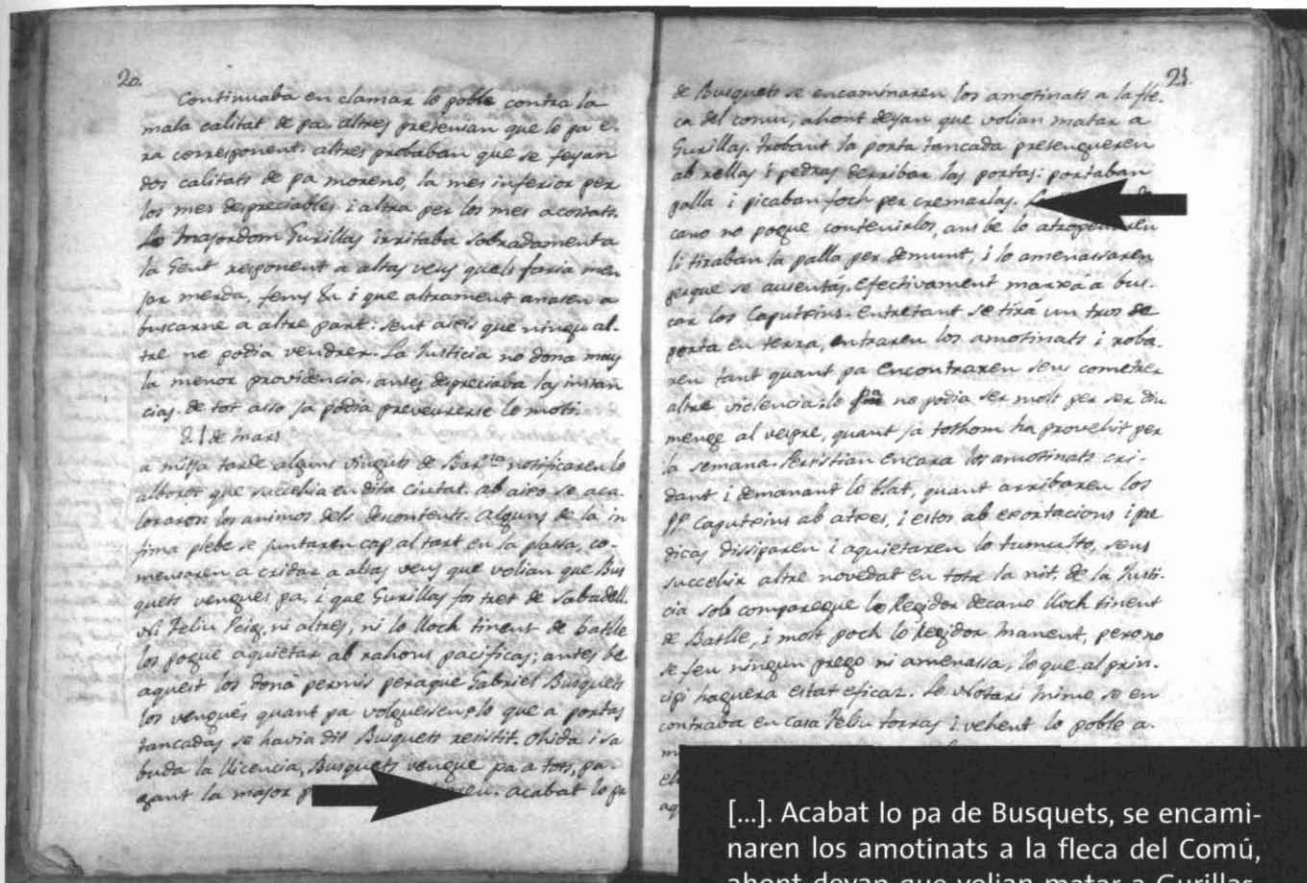 20.
Continuaba en clamar lo poble contra la
mala calitat de pa. altres pretenian que lo pa e-
ra corresponent. altres probaban que se feyan
dos calitats de pa moreno, la mes inferior per
los mes despreciables i altra per los mes acostats.
Lo Majordom Gurillas irritaba sobradament a
la Gent responent a altas veus quels faria men
jar merda, fems &ª i que altrament anasen a
buscarne a altre part: sent aixis que ningu al-
tre ne podia vendrer. La Justicia no dona may
la menor providencia. antes despreciaba las instan
cias. de tot aixo ja podia preveurerse lo motí.
21 de Mars
a mitja tarde alguns vinguts de Barna notificaren lo
alborot que succehia en dita ciutat. ab aixo se aca-
loraren los animos dels descontents. alguns de la in
fima plebe se juntaren cap al tart en la plassa, co-
mensaren a cridar a altas veus que volian que Bus
quets vengues pa, i que Gurillas fos tret de Sabadell.
Ni Feliu Puig, ni altres, ni lo lloch tinent de batlle
los pogué aquietar ab rahons pacificas; antes be
aqueit los doná permis peraque Gabriel Busquets
los vengués quant pa volguessen, lo que a portas
tancadas se havia dit Busquets resistit. Ohida i sa
buda la llicencia, Busquets vengue pa a tots, pa-
gant la major acabat lo pa
21.
de Busquets se encaminaren los amotinats a la fle-
ca del comu, ahont deyan que volian matar a
Gurillas. trobant la porta tancada pretengueren
ab rellas i pedras derribar las portas: portaban
palla i picaban foch per cremarlas.
cano no pogue contenirlos, ans be lo atropellaren
li tiraban la palla per demunt, i lo amenassaren
perque se ausentás. Efectivament marxá a bus-
car los Caputxins. entretant se tirá un tros de
porta en terra, entraren los amotinats i roba-
ren tant quant pa encontraren sens cometrer
altre violencia. lo no podia ser molt per ser diu
menge al vespre, quant ja tothom ha provehit per
la semana. Persistian encara los amotinats cri-
dant i demanant lo blat, quant arribaren los
PP. Caputxins ab atxes, i estos ab exortacions i pre
dicas dissiparen i aquietaren lo tumulto, sens
succehir altre novedat en tota la nit. de la Justi-
cia sols comparegue lo Regidor decano lloch tinent
de Batlle, i molt poch lo Regidor Manent, pero no
se feu ningun prego ni amenassa, lo que al prin-
cipi haguera estat eficaz. Lo Notari Mimo se en
contraba en casa Feliu torras i vehent lo poble a-
[...]. Acabat lo pa de Busquets, se encami-
naren los amotinats a la fleca del Comú,
ahont deyan que volian matar a Gurillas.